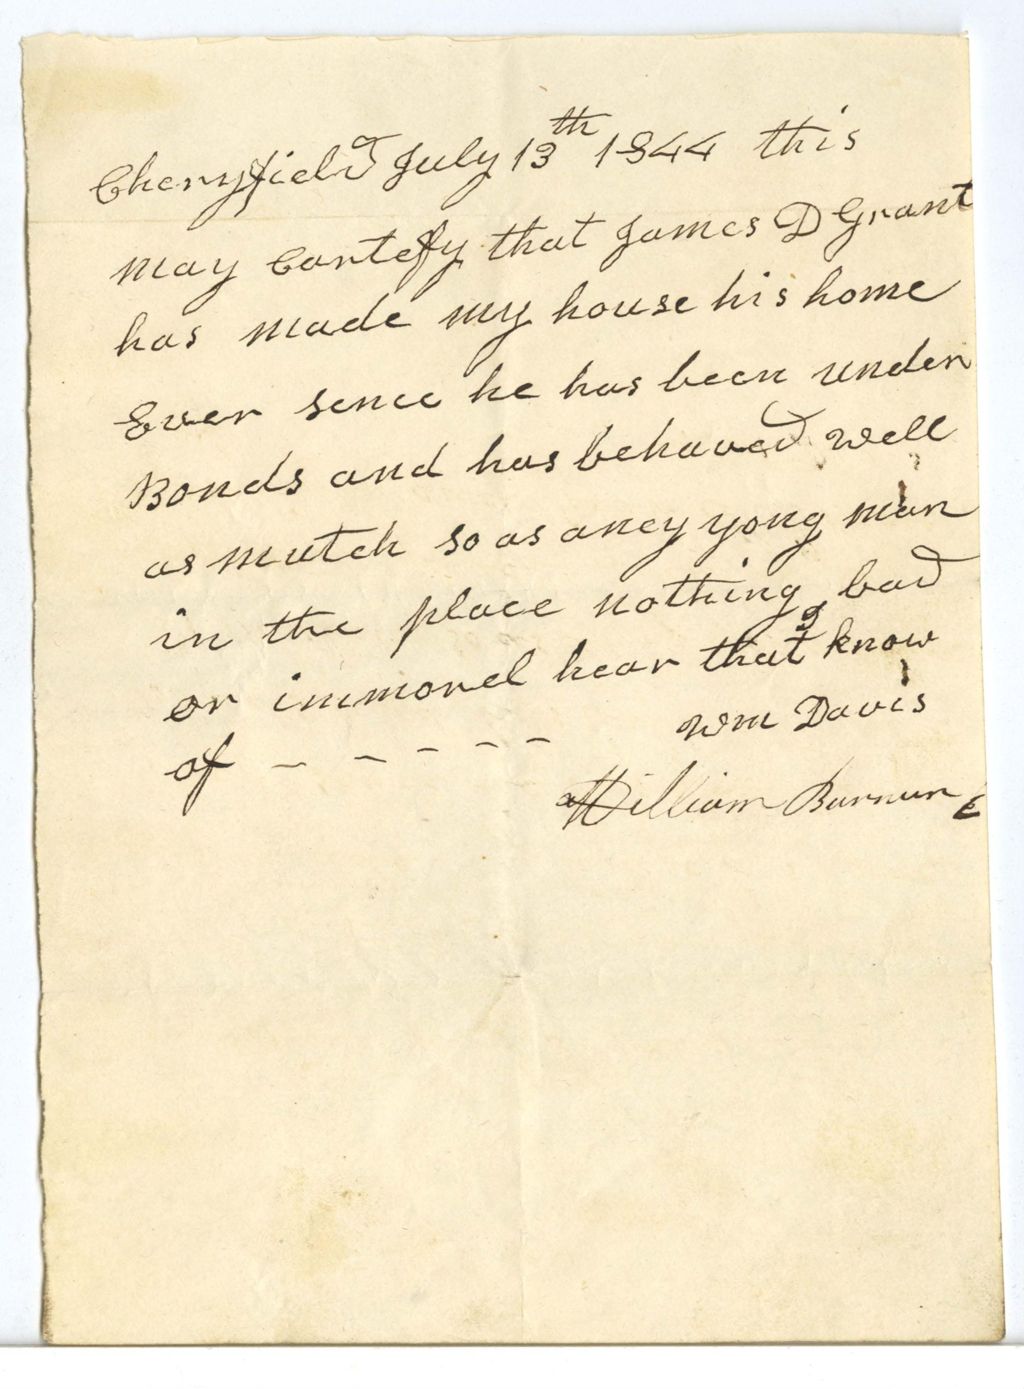 Cherryfield July 13th 1844 this
may Cartefy that James D Grant
has made my house his home
Ever sence he has been under
Bonds and has behaved well
as mutch so as aney yong man
in the place nothing bad
or immorel hear that I know
of – – – – – Wm Davis
William